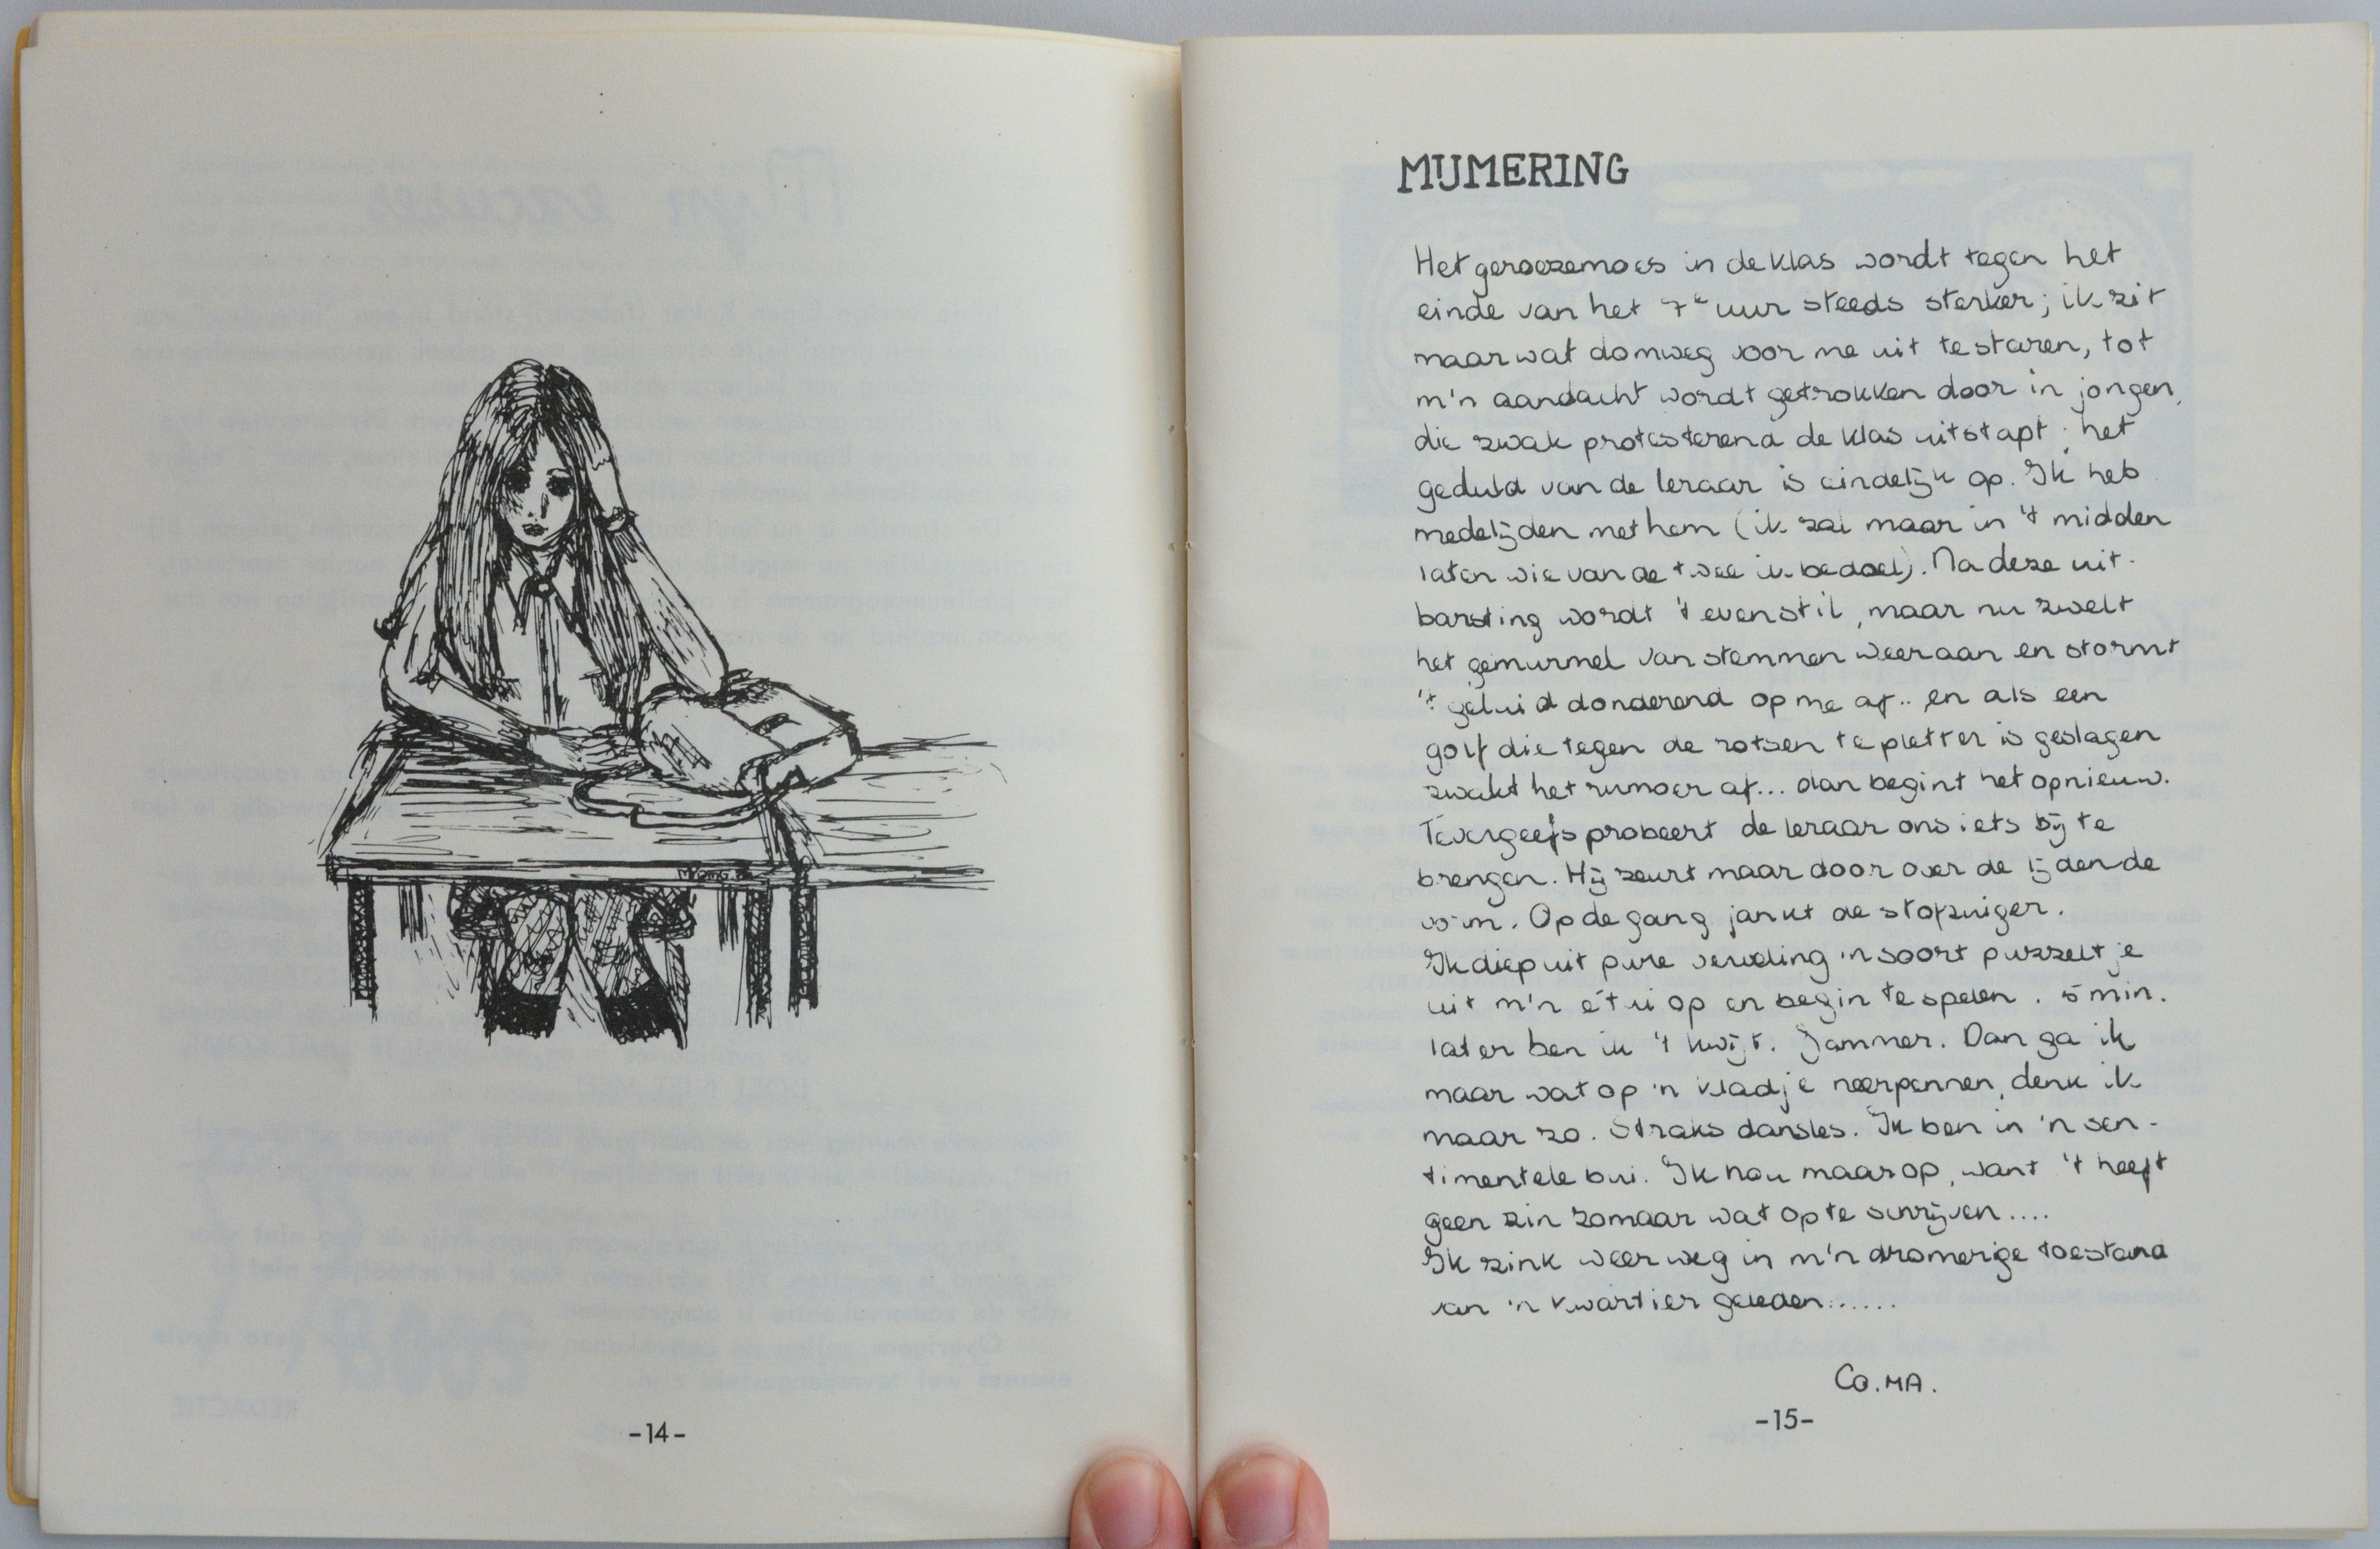 -14-
MIJMERING
Het geroezemoes in de klas wordt tegen het
einde van het 7e uur steeds sterker; ik zit
maar wat domweg voor me uit te staren, tot
m'n aandacht wordt getrokken door 'n jongen,
die zwak protesterend de klas uitstapt; het
geduld van de leraar is eindelijk op. Ik heb
medelijden met hem (ik zal maar in 't midden
laten wie van de twee ik bedoel). Na deze uit-
barsting wordt 't even stil, maar nu zwelt
het gemurmel van stemmen weer aan en stormt
't geluid donderend op me af.. en als een
golf die tegen de rotsen te pletter is geslagen
zwakt het rumoer af... dan begint het opnieuw.
Tevergeefs probeert de leraar ons iets bij te
brengen. Hij zeurt maar door over de lijdende
vorm. Op de gang jankt de stofzuiger.
Ik diep uit pure verveling 'n soort puzzeltje
uit m'n etui op en begin te spelen. 5 min.
later ben ik 't kwijt. Jammer. Dan ga ik
maar wat op 'n kladje neerpennen, denk ik
maar zo. Straks dansles. Ik ben in 'n sen-
timentele bui. Ik hou maar op, want 't heeft
geen zin zomaar wat op te schrijven....
Ik zink weer weg in m'n dromerige toestand
van 'n kwartier geleden......
Co.MA.
-15-